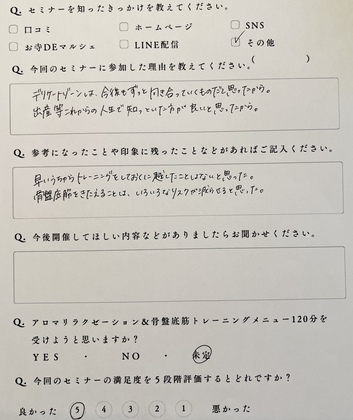 Q. セミナーを知ったきっかけを教えてください。
□ 口コミ □ ホームページ □ SNS
□ お寺DEマルシェ □ LINE配信 ☑ その他
( )
Q. 今回のセミナーに参加した理由を教えてください。
デリケートゾーンは、今後もずっと向き合っていくものだと思ったから。
出産等これからの人生で知っといた方が良いと思ったから。
Q. 参考になったことや印象に残ったことなどがあればご記入ください。
早いうちからトレーニングをしておくに越したことはないと思った。
骨盤底筋をきたえることは、いろいろなリスクが減らせると思った。
Q. 今後開催してほしい内容などがありましたらお聞かせください。
Q. アロマリラクゼーション&骨盤底筋トレーニングメニュー120分を
受けようと思いますか?
YES ・ NO ・ 未定
Q. 今回のセミナーの満足度を5段階評価するとどれですか?
良かった 5 4 3 2 1 悪かった